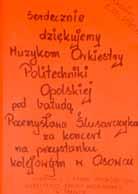 Serdecznie
dziękujemy
Muzykom Orkiestry
Politechniki
Opolskiej
pod batutą
Przemysława Ślusarczyka
za koncert
na przystanku
kolejowym w Osowcu